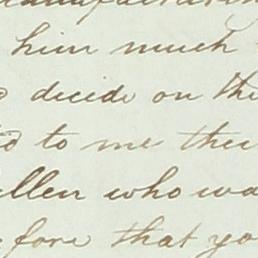 him much
decide on the
to me the
llen who wa
fore that yo